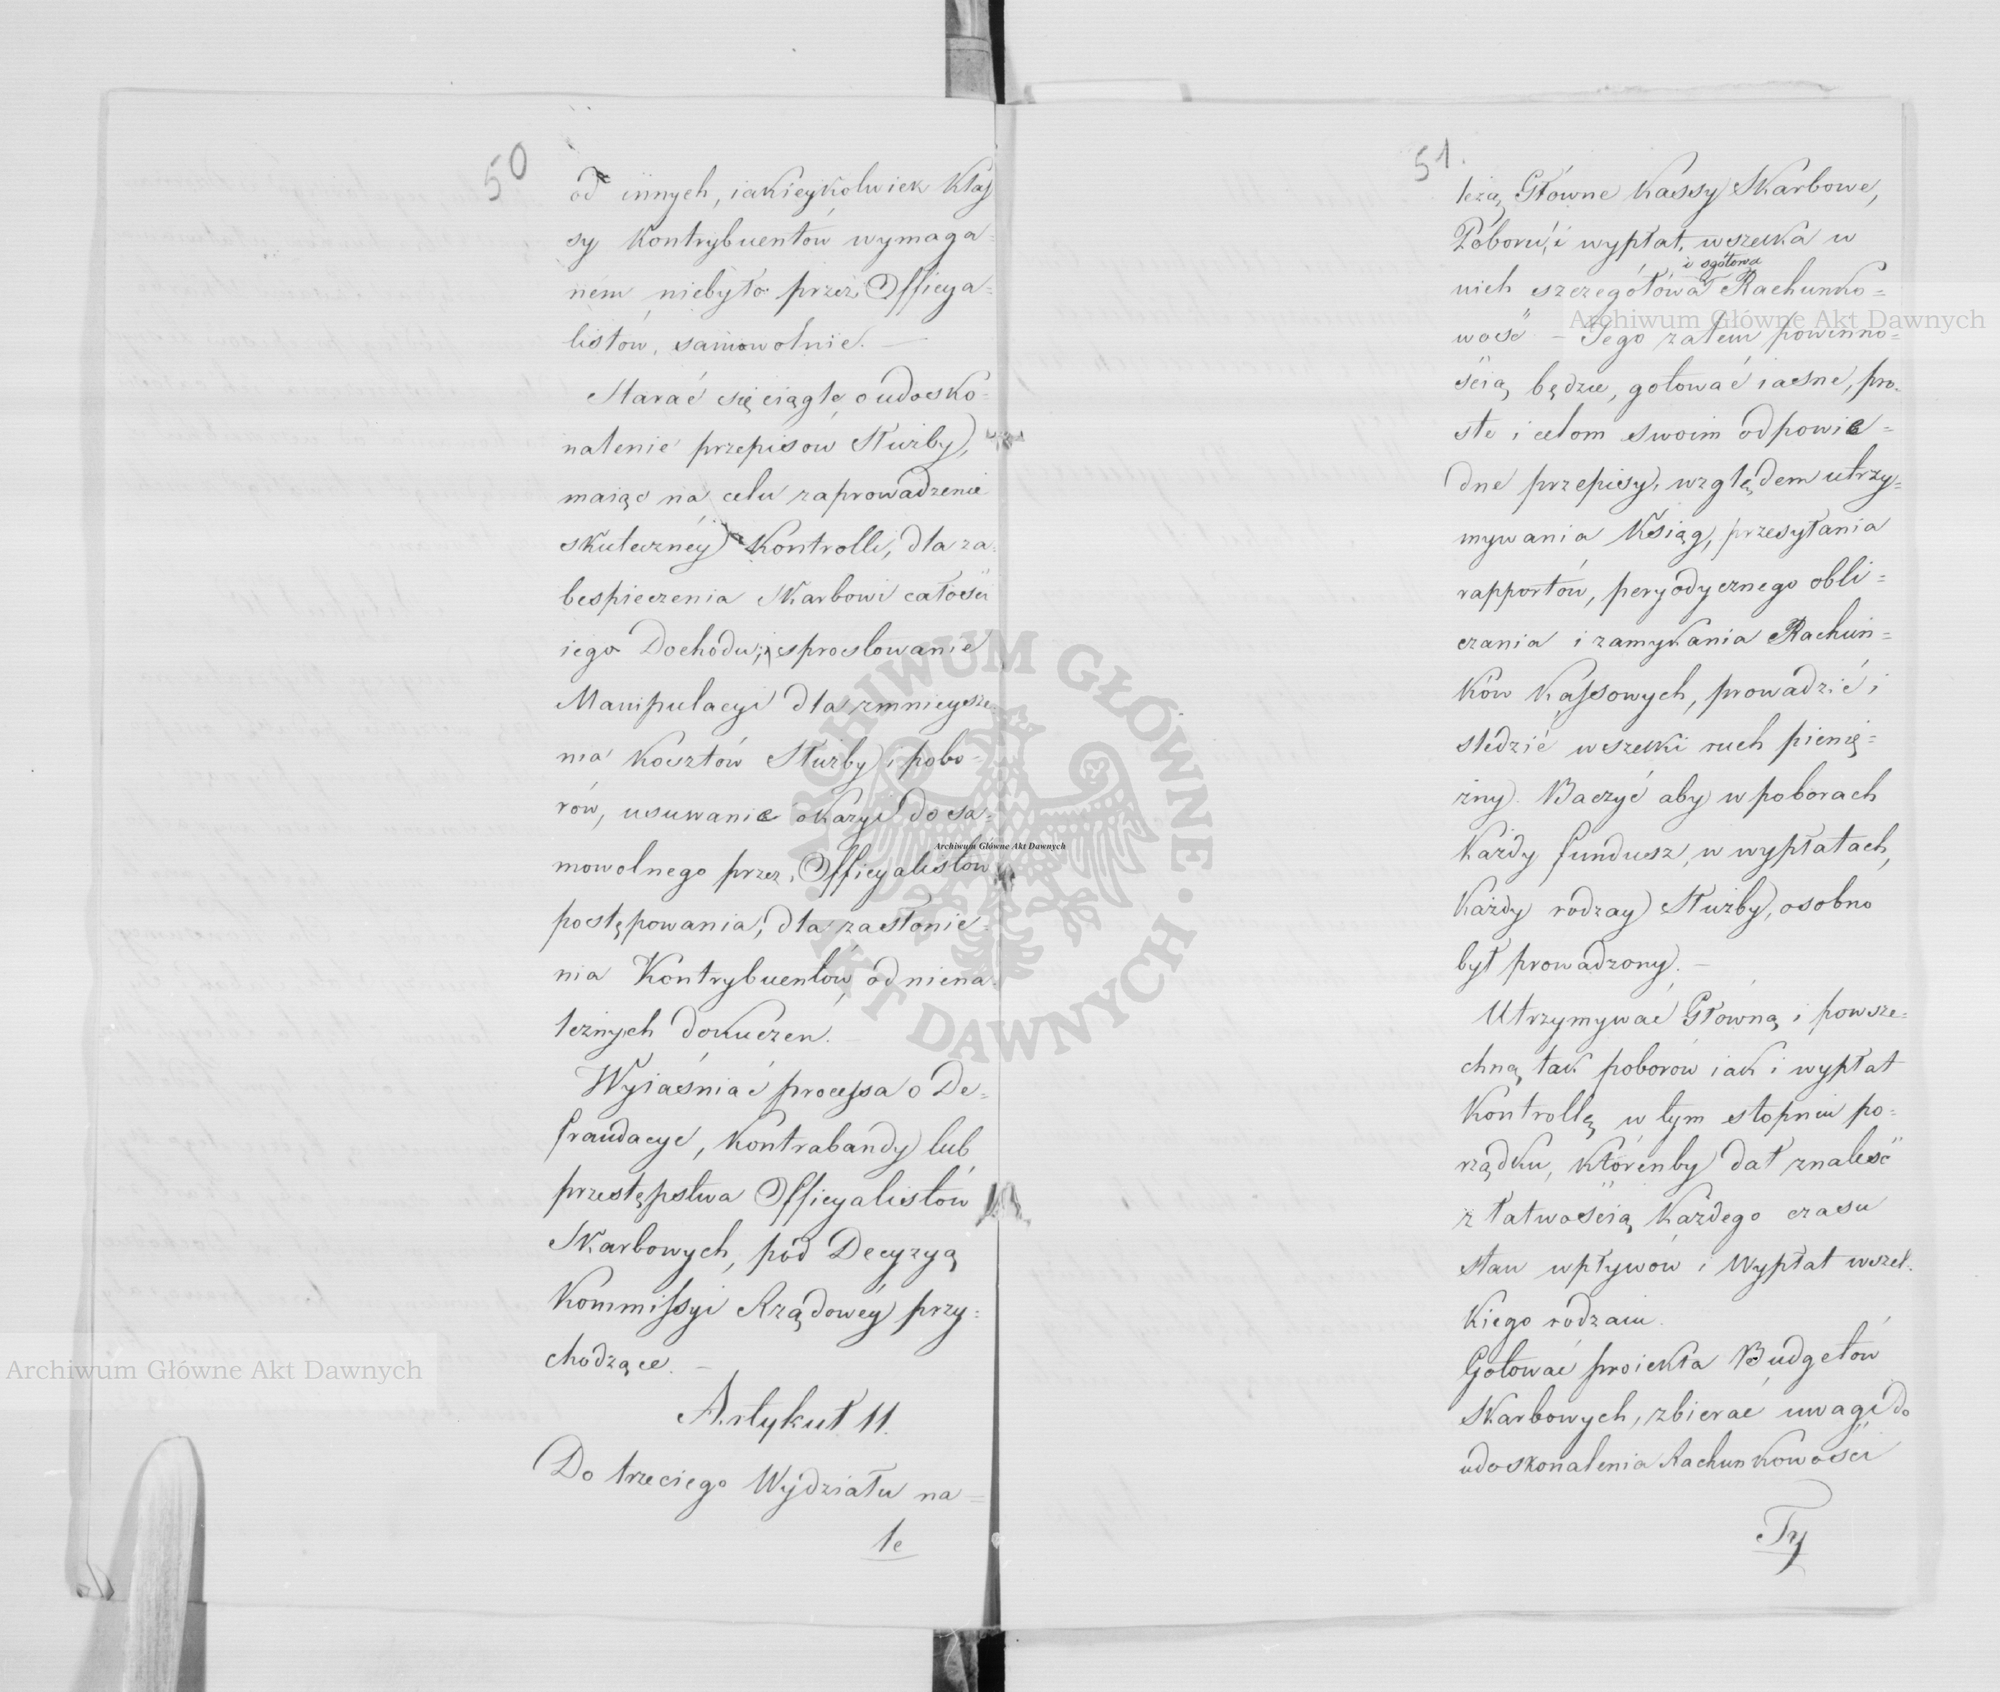 50
od innych, iakieykolwiek Klas
sy Kontrybuentów wymaga=
nem niebyło przez Officya=
listów, samowolnie. —
Starać się ciągle o udosko=
nalenie przepisów Służby,
maiąc na celu zaprowadzenie
skuteczney Kontrolli, dla za=
bespieczenia Skarbowi całości
iego Dochodu, sprostowanie
Manipulacyi dla zmnieysze=
nia Kosztów Służby i pobo=
rów, usuwanie okazyi do sa=
mowolnego przez Officyalistów
postępowania, dla zasłonie=
nia Kontrybuentów od niena=
leżnych dokuczen. —
Wyiaśniać processa o De=
fraudacye, Kontrabandy lub
przestępstwa Officyalistów
Skarbowych, pod Decyzyą
Kommissyi Rządowéy przy=
chodzące. —
Artykuł 11.
Do trzeciego Wydziału na=
le
51.
leżą Główne Kassy Skarbowe,
Poboru, i wypłat, wszelka w
i ogółowa
nich szczegółowa Rachunko=
wość — Iego zatem powinno=
ścią będzie, gotować iasne, pro=
ste i celom swoim odpowie=
dne przepisy, względem utrzy=
mywania Ksiąg, przesyłania
rapportów, peryodycznego obli=
czania i zamykania Rachun=
ków Kassowych, prowadzić i
sledzić wszelki ruch pienię=
żny. Baczyć aby w poborach
Każdy fundusz, w wypłatach,
Każdy rodzay Służby, osobno
był prowadzony. —
Utrzymywać Główną i powsze=
chną tak poborów iak i wypłat
Kontrollę w tym stopniu po=
rządku, którenby dał znaleść
z łatwością Każdego czasu
stan wpływów i Wypłat wszel=
kiego rodzaiu.
Gotować proiekta Budgetów
Skarbowych, zbierać uwagi do
udoskonalenia Rachunkowości
Ty
Archiwum Główne Akt Dawnych
ARCHIWUM GŁÓWNE · AKT DAWNYCH ·
Archiwum Główne Akt Dawnych
Archiwum Główne Akt Dawnych